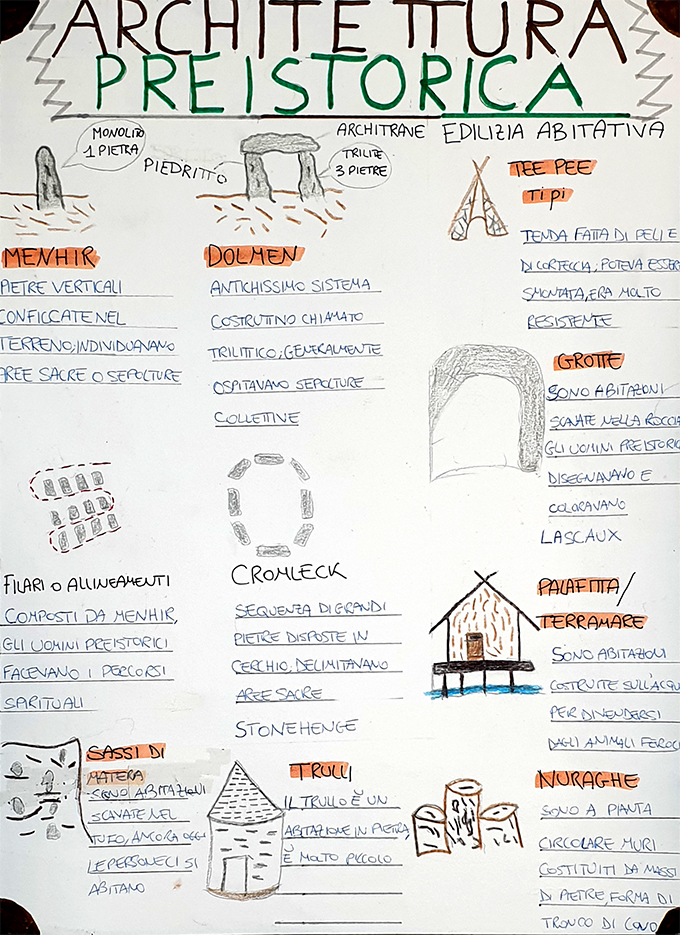 ARCHITETTURA
PREISTORICA
MONOLITO
1 PIETRA
PIEDRITTO
ARCHITRAVE
TRILITE
3 PIETRE
EDILIZIA ABITATIVA
MENHIR
PIETRE VERTICALI
CONFICCATE NEL
TERRENO, INDIVIDUAVANO
AREE SACRE O SEPOLTURE
DOLMEN
ANTICHISSIMO SISTEMA
COSTRUTTIVO CHIAMATO
TRILITICO, GENERALMENTE
OSPITAVANO SEPOLTURE
COLLETTIVE
TEE PEE
Tipi
TENDA FATTA DI PELI E
DI CORTECCIA, POTEVA ESSER
SMONTATA, ERA MOLTO
RESISTENTE
GROTTE
SONO ABITAZIONI
SCAVATE NELLA ROCCIA
GLI UOMINI PREISTORIC
DISEGNAVANO E
COLORAVANO
LASCAUX
FILARI O ALLINEAMENTI
COMPOSTI DA MENHIR,
GLI UOMINI PREISTORICI
FACEVANO I PERCORSI
SPIRITUALI
CROMLECK
SEQUENZA DI GRANDI
PIETRE DISPOSTE IN
CERCHIO, DELIMITAVANO
AREE SACRE
STONEHENGE
PALAFITTA/
TERRAMARE
SONO ABITAZIOLI
COSTRUITE SULL'ACQU
PER DIVENDERSI
DAGLI ANIMALI FEROCI
SASSI DI
MATERA
SONO ABITAZIONI
SCAVATE NEL
TUFO, ANCORA OGGI
LE PERSONE CI SI
ABITANO
TRULLI
IL TRULLO È UN
ABITAZIONE IN PIETRA,
È MOLTO PICCOLO
NURAGHE
SONO A PIANTA
CIRCOLARE MURI
COSTITUITI DA MASSI
DI PIETRE, FORMA DI
TRONCO DI CONO